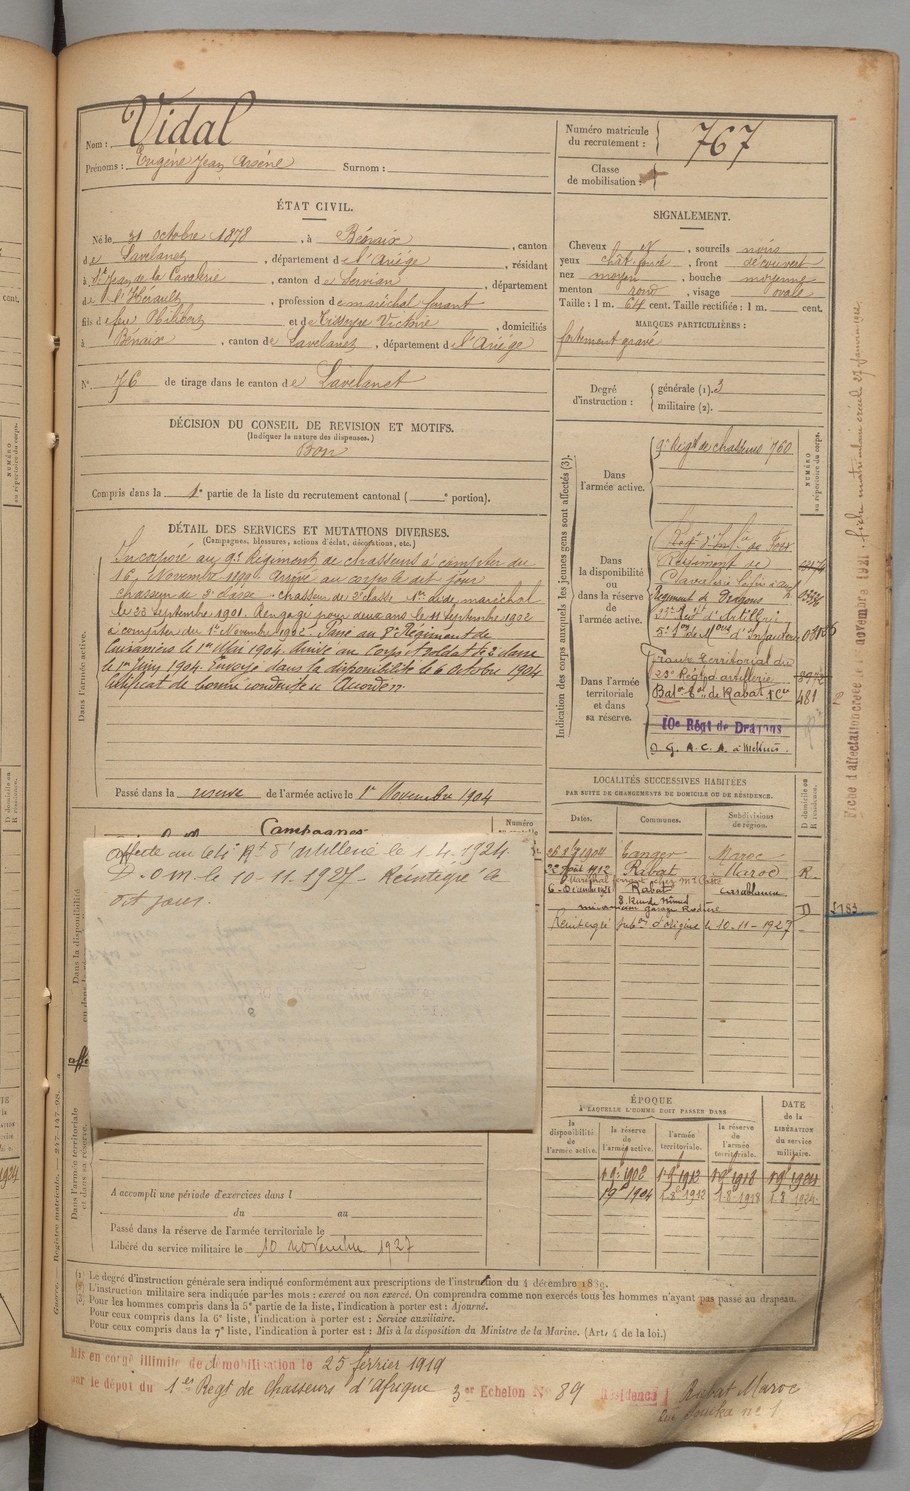 Nom : Vidal
Prénoms : Eugène Jean Arsène Surnom :
Numéro matricule du recrutement : 767
Classe de mobilisation :
ÉTAT CIVIL.
Né le 31 octobre 1878, à Bénaix, canton
de Lavelanet, département de l'Ariège, résidant
à St Jean de la Caverie, canton de Servian, département
de l'Hérault, profession de maréchal ferrant
fils de feu Philibert et de Teisseyre Victoire, domiciliés
à Bénaix, canton de Lavelanet, département de l'Ariège
N° 76 de tirage dans le canton de Lavelanet
DÉCISION DU CONSEIL DE REVISION ET MOTIFS.
(Indiquer la nature des dispenses.)
Bon
Compris dans la 1e partie de la liste du recrutement cantonal ( e portion).
DÉTAIL DES SERVICES ET MUTATIONS DIVERSES.
(Campagnes, blessures, actions d'éclat, décorations, etc.)
Dans l'armée active.
Incorporé au 9e Régiment de chasseurs à compter du
16 Novembre 1899. Arrivé au corps le dit jour
chasseur de 2e classe. chasseur de 2e classe 1er aide maréchal
le 23 septembre 1901. Rengagé pour deux ans le 11 septembre 1902
à compter du 1er Novembre 1902. Passé au 8e Régiment de
Cuirassiers le 1er Mai 1904. Arrivé au Corps et soldat de 2e classe
le 1er Mai 1904. Envoyé dans la disponibilité le 6 Octobre 1904
Certificat de bonne conduite "Accordé".
Passé dans la réserve de l'armée active le 1er Novembre 1904
Campagnes
Numéro
affecté au R.t d'artillerie le 1-4-1924.
D.O.M. le 10-11-1927 Réintégré le
dit jour.
Dans la disponibilité
Dans l'armée territoriale
et dans sa réserve.
A accompli une période d'exercices dans l
du au
Passé dans la réserve de l'armée territoriale le
Libéré du service militaire le 10 novembre 1927
SIGNALEMENT.
Cheveux et, sourcils noirs
yeux chât. foncé, front découvert
nez moyen, bouche moyenne
menton rond, visage ovale
Taille : 1 m. 64 cent. Taille rectifiée : 1 m. cent.
MARQUES PARTICULIÈRES :
fortement gravé
Degré d'instruction : générale (1). 3
militaire (2).
Indication des corps auxquels les jeunes gens sont affectés (3).
NUMÉRO au répertoire du corps.
Dans l'armée active.
9e Régt de chasseurs 760
Dans la disponibilité ou dans la réserve de l'armée active.
Régt d'Inf.ie de Foix
Régiment de
Cavalerie
Régiment de Dragons
d'Artillerie
d'Infanterie
Dans l'armée territoriale et dans sa réserve.
territorial du
23e Régt d'artillerie 8972
Baton tal de Rabat 481
10e Régt de Dragons
D. G. A. C. A. à Meknès.
LOCALITÉS SUCCESSIVES HABITÉES
PAR SUITE DE CHANGEMENTS DE DOMICILE OU DE RÉSIDENCE.
Dates. Communes. Subdivisions de région. D domicile ou R résidence.
1904 Tanger Maroc
22 Août 1912 Rabat Maroc R
Maréchal ferrant chez Mr
Rabat Casablanca
D 5783
Réintégré subon d'origine le 10-11-1927
ÉPOQUE
A LAQUELLE L'HOMME DOIT PASSER DANS
la disponibilité de l'armée active. la réserve de l'armée active. l'armée territoriale. la réserve de l'armée territoriale. DATE de la LIBÉRATION du service militaire.
1 9e 1902 1 9e 1912 1 9e 1918 1 9e 1924
1 9e 1904 1 8e 1912 1 8e 1918 1 8e 1924
(1) Le degré d'instruction générale sera indiqué conformément aux prescriptions de l'instruction du 4 décembre 1889.
(2) L'instruction militaire sera indiquée par les mots : exercé ou non exercé. On comprendra comme non exercés tous les hommes n'ayant pas passé au drapeau.
(3) Pour les hommes compris dans la 5e partie de la liste, l'indication à porter est : Ajourné.
Pour ceux compris dans la 6e liste, l'indication à porter est : Service auxiliaire.
Pour ceux compris dans la 7e liste, l'indication à porter est : Mis à la disposition du Ministre de la Marine. (Art. 4 de la loi.)
Mis en congé illimité de démobilisation le 25 février 1919
par le dépôt du 1er Régt de Chasseurs d'Afrique 3er Echelon N° 89 Résidence : Rabat Maroc
Rue Souika n° 1